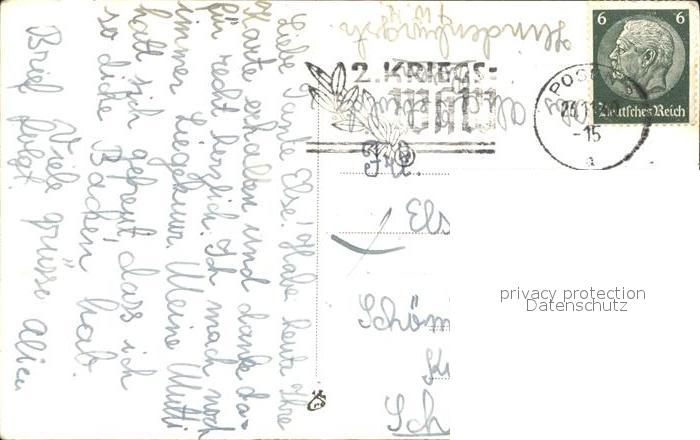 Liebe Tante Else! Habe heute Ihre
Karte erhalten und danke da-
für recht herzlich. Ich mach noch
immer Liegekur. Meine Mutti
hatt sich gefreut das ich
so dicke Backen hab.
Brief folgt. Viele Grüsse
2. KRIEGS-
WHW
6 6
Deutsches Reich
POSEN
-15
a
Frl.
Els
Schöm
Sch
privacy protection
Datenschutz